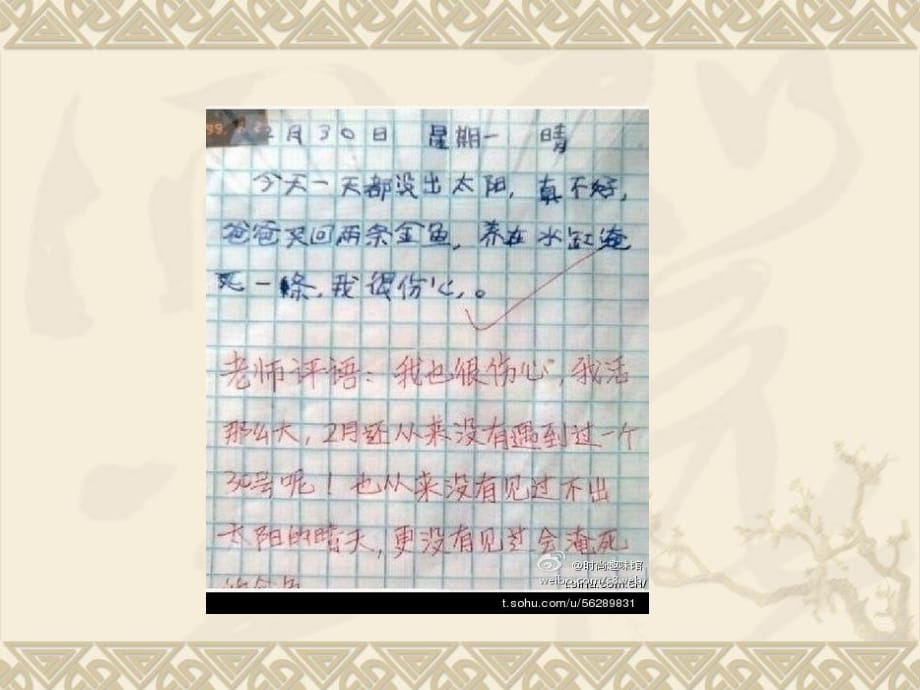 2月30日 星期一 晴
今天一天都没出太阳，真不好，
爸爸买回两条金鱼，养在水缸淹
死一條，我很伤心，。
老师评语：我也很伤心，我活
那么大，2月还从来没有遇到过一个
30号呢！也从来没有见过不出
太阳的晴天，更没有见过会淹死
@时尚趣味馆
t.sohu.com/u/56289831